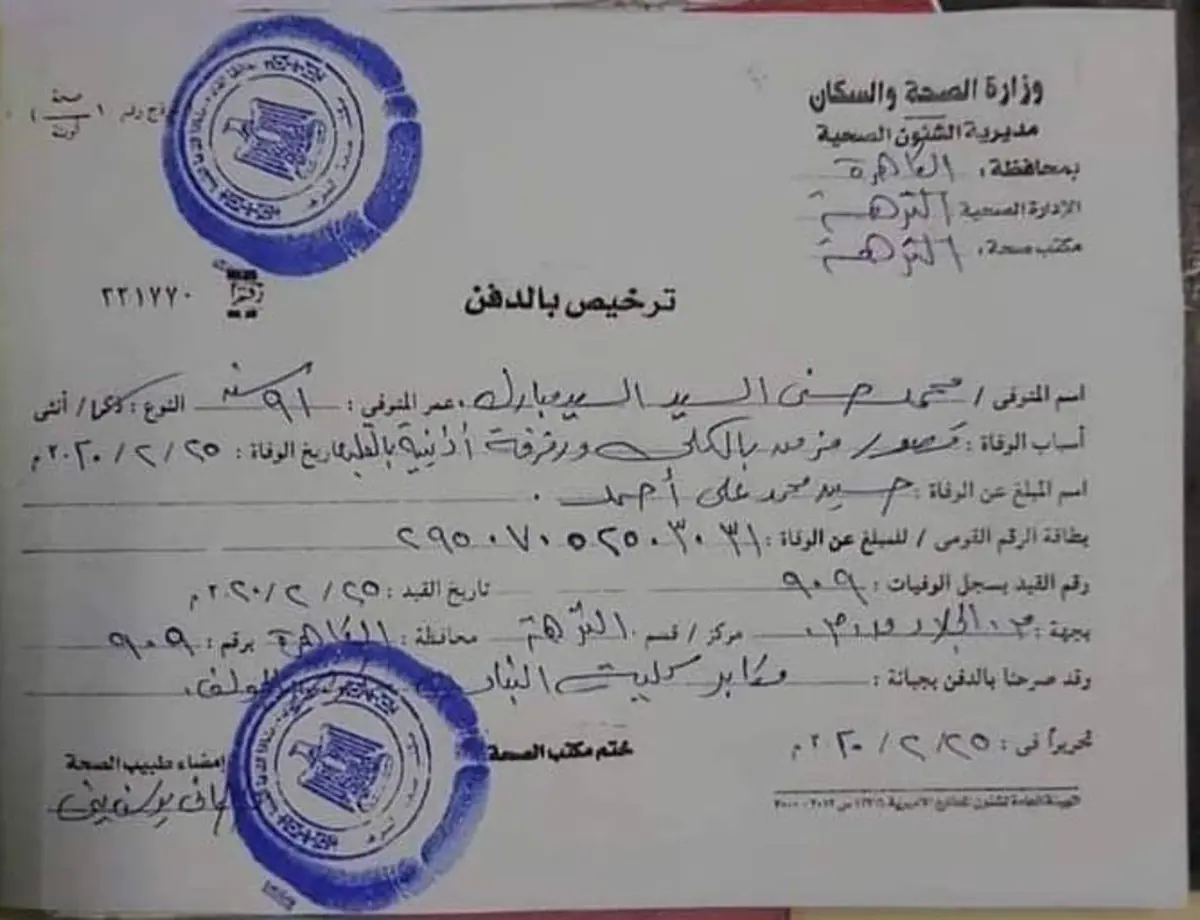 وزارة الصحة والسكان
مديرية الشئون الصحية
بمحافظة : القاهرة
الإدارة الصحية النزهة
مكتب صحة : النزهة
صحة
ترخيص بالدفن
٢٢١٧٧٠
اسم المتوفى / محمد حسنى السيد السيد مبارك عمر المتوفى : ٩١ سنة النوع : ذكر / أنثى
أسباب الوفاة : قصور مزمن بالكلى ورفرفة أذنية بالقلب تاريخ الوفاة : ٢٥ / ٢ / ٢٠٢٠ م
اسم المبلغ عن الوفاة : سيد محمد على أحمد
بطاقة الرقم القومى / للمبلغ عن الوفاة : ٢٩٥٠٧٠٥٢٥٠٣٠٣١
رقم القيد بسجل الوفيات : ٩٠٩ تاريخ القيد : ٢٥ / ٢ / ٢٠٢٠ م
بجهة : م. الجلاء مركز / قسم النزهة محافظة : القاهرة برقم : ٩٠٩
وقد صرحنا بالدفن بجبانة : مقابر كلية البنات
تحريراً فى : ٢٥ / ٢ / ٢٠٢٠ م
ختم مكتب الصحة
إمضاء طبيب الصحة
الهيئة العامة لشئون المطابع الأميرية